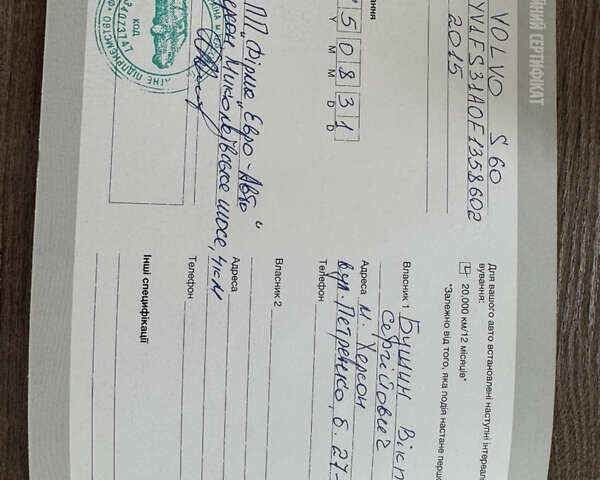 ЙНИЙ СЕРТИФІКАТ
VOLVO S60
YV1FS31A0F1358602
2015
5 0 8 3 1
Y M M D D
ПП „Фірма „Евро-Авто"
Миколаївське шосе, 4 км
КОД
Для вашого авто встановлені наступні інтервали
вування:
20,000 км/12 місяців*
*Залежно від того, яка подія настане перш
Власник 1 Бушин
Сергійович
Адреса м. Херсон
вул. Петренко, б. 27
Телефон
Власник 2
Адреса
Телефон
Інші специфікації